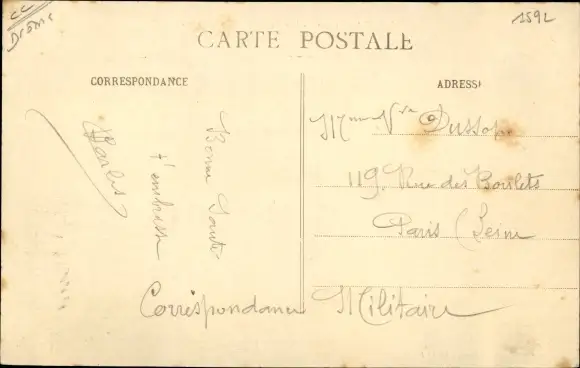 cc
Drôme
1592
CARTE POSTALE
CORRESPONDANCE
ADRESSE
Bonne Santé
t'embrasse
Charles
Mme Vve
119 Rue des Boulets
Paris (Seine
Correspondance Militaire